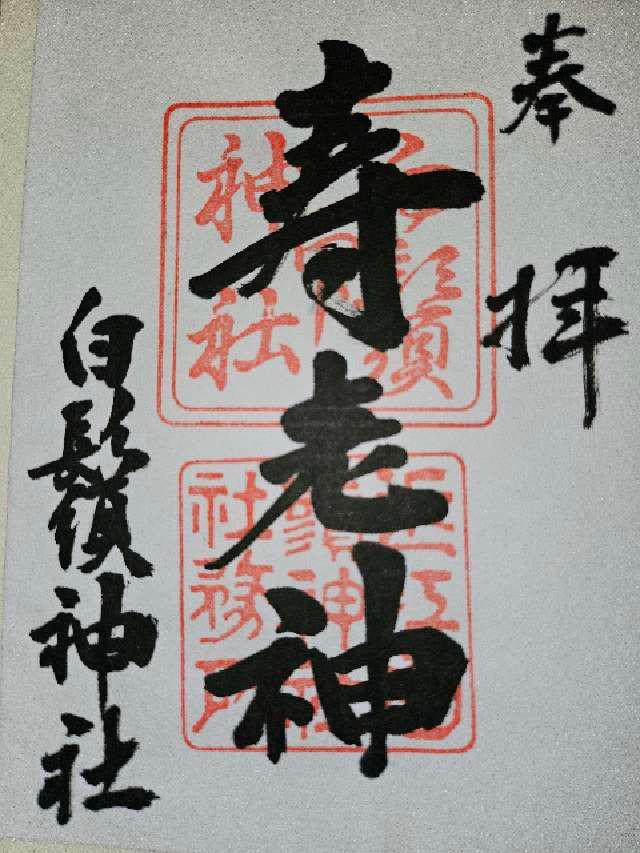 奉拝
寿老神
白鬚神社
白鬚神社
社務所